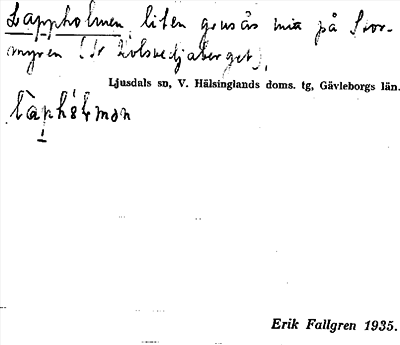 Lappholmen, liten grusås mitt på Stor-
myren (Ir Kolsvedjaberget).
Ljusdals sn, V. Hälsinglands doms. tg, Gävleborgs län.
Erik Fallgren 1935.